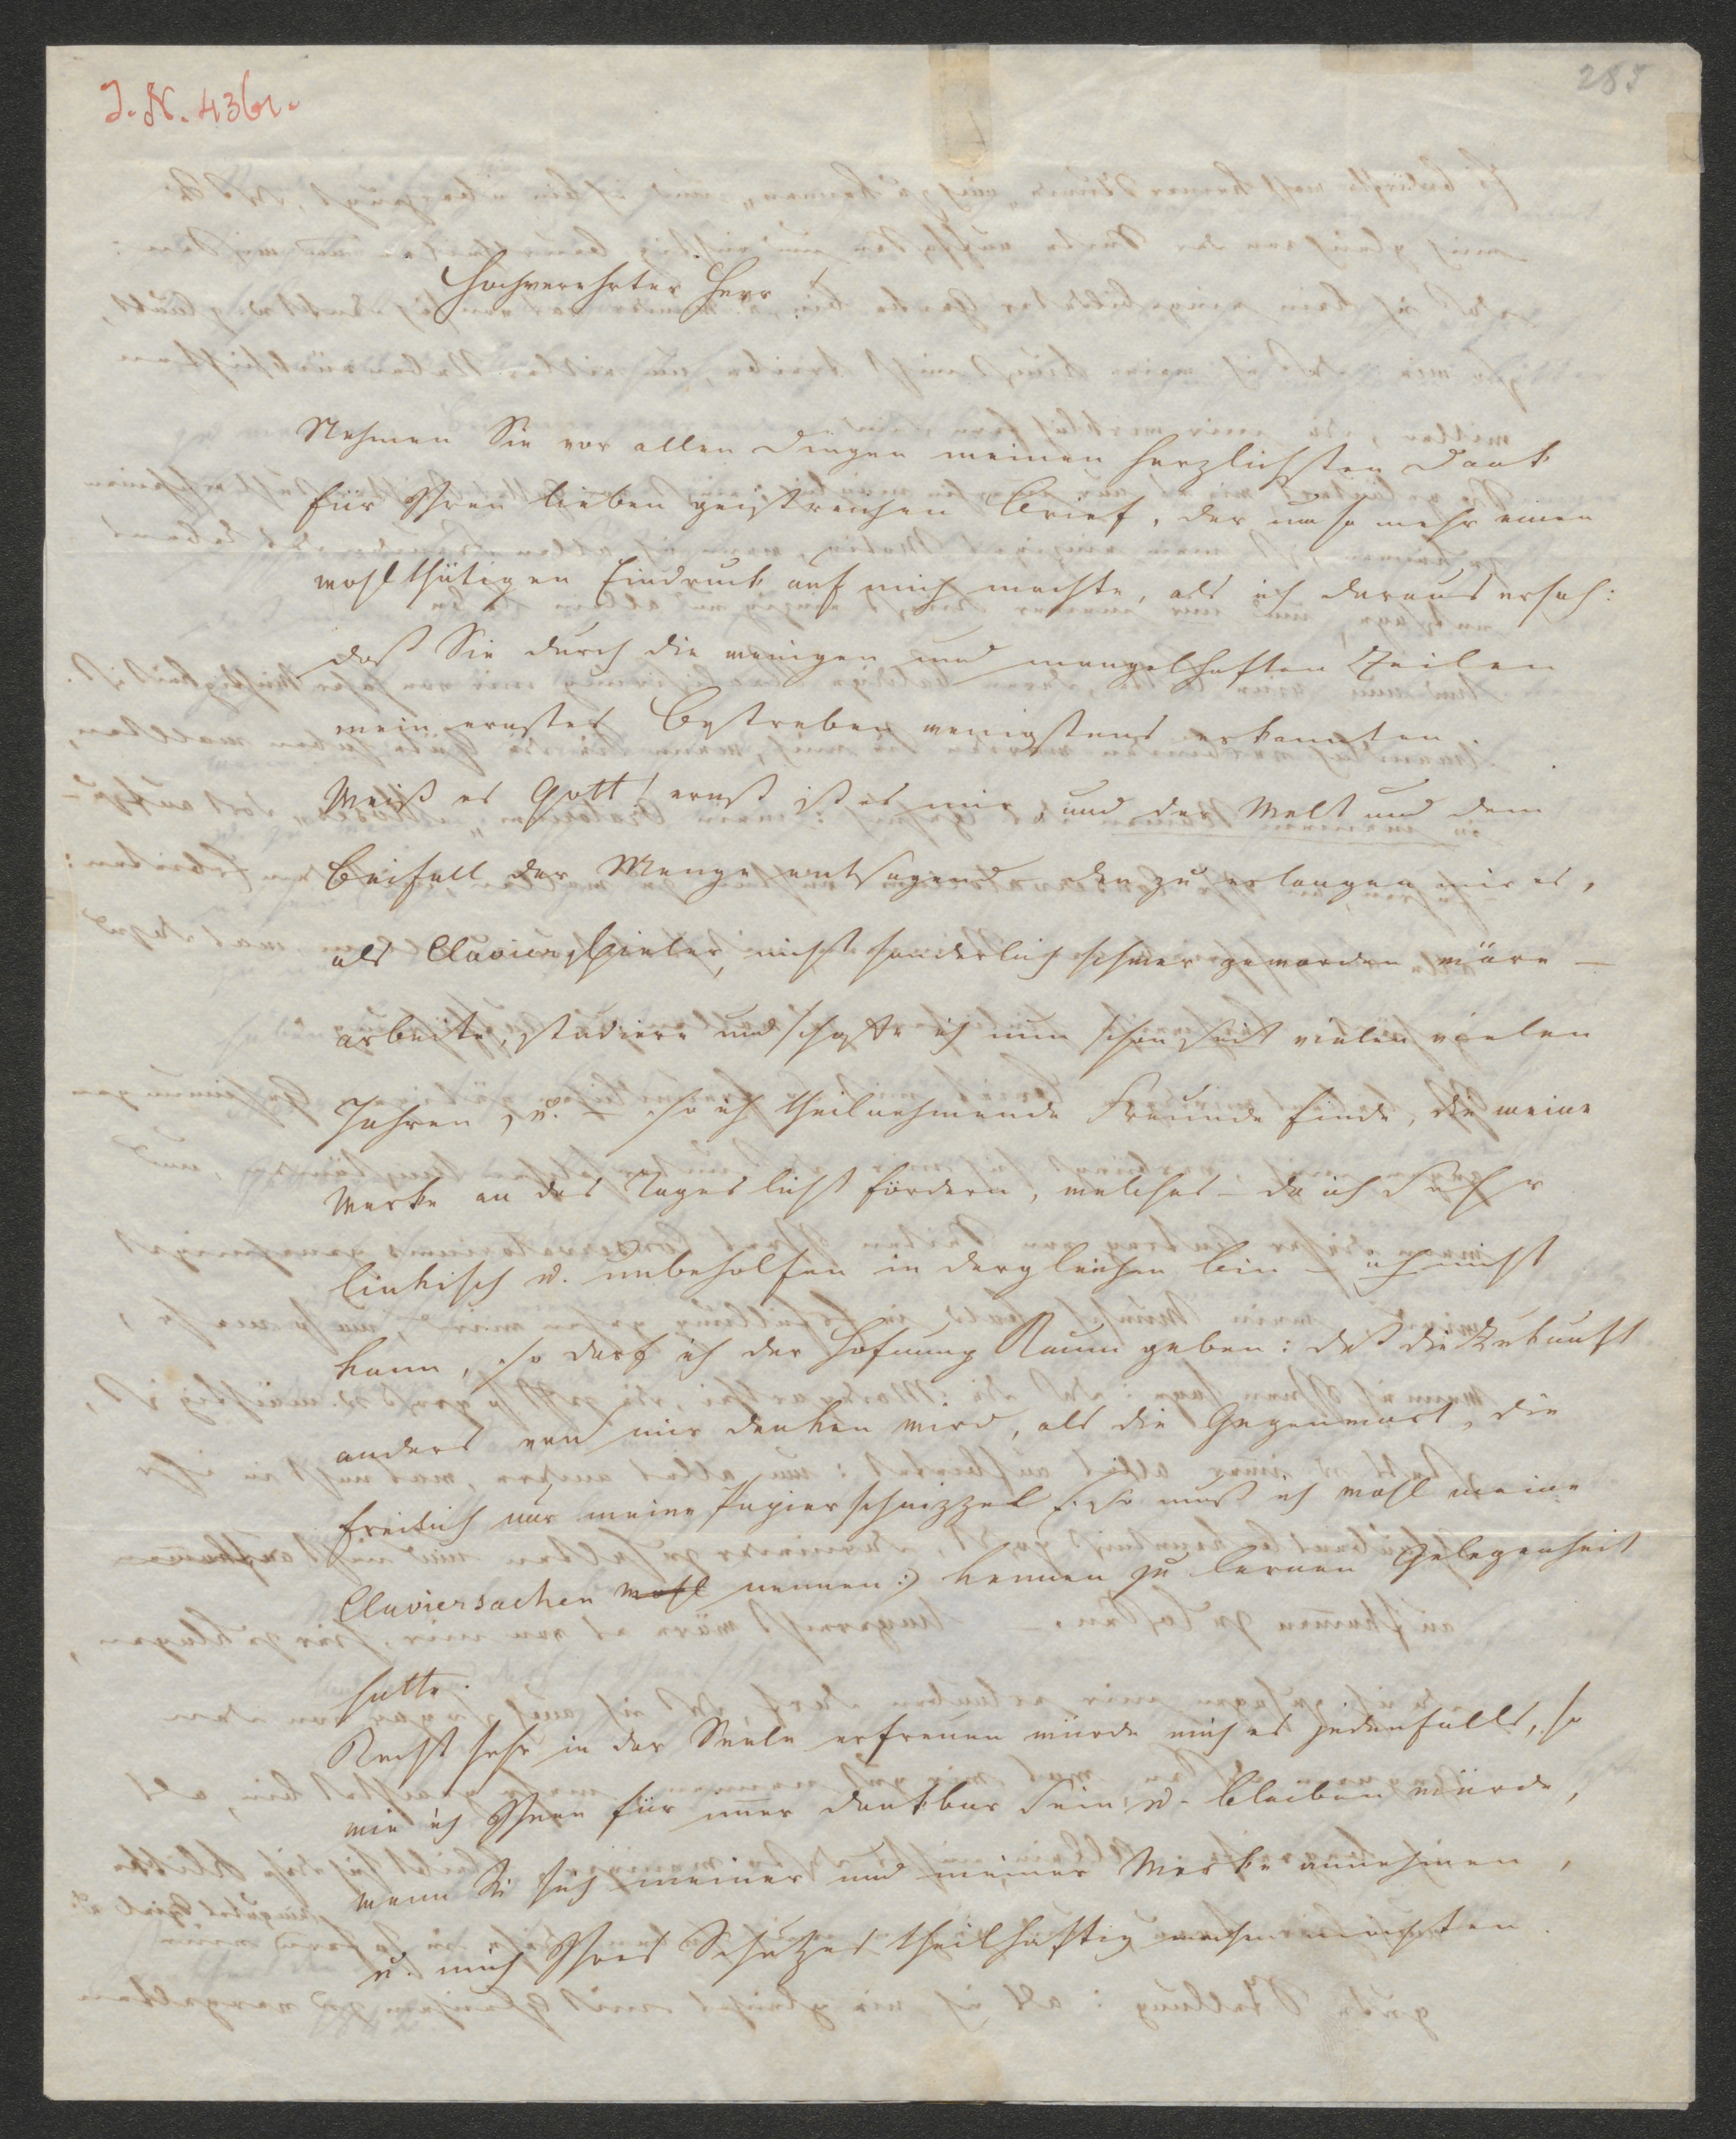 J. N. 4361.
285
Hochverehrter Herr!
Nehmen Sie vor allen Dingen meinen herzlichsten Dank
für Ihren lieben geistreichen Brief, der um so mehr einen
wohlthätigen Eindruck auf mich machte, als ich daraus ersah:
daß Sie durch die wenigen und mangelhaften Zeilen
mein ernstes Bestreben wenigstens erkannten.
Weiß es Gott! ernst ist es mir, und der Welt und dem
Beifall der Menge entsagend – den zu erlangen mir es,
als Clavierspieler, nicht sonderlich schwer geworden wäre –
arbeite, studiere und schaffe ich nun schon seit vielen vielen
Jahren, u. – so ich theilnehmende Freunde finde, die meine
Werke an das Tageslicht fördern, welches – da ich sehr
linkisch u. unbeholfen in dergleichen bin – ich nicht
kann, so darf ich der Hofnung Raum geben: daß die Zukunft
anders von mir denken wird, als die Gegenwart, die
freilich nur meine Papierschnizzel (: so muß ich wohl meine
Claviersachen wohl nennen :) kennen zu lernen Gelegenheit
hatte.
Recht sehr in der Seele erfreuen würde mich es jedenfalls, so
wie ich Ihnen für immer dankbar sein u. bleiben würde,
wenn Sie sich meiner und meiner Werke annehmen,
u. mich Ihres Schutzes theilhaftig machen möchten.